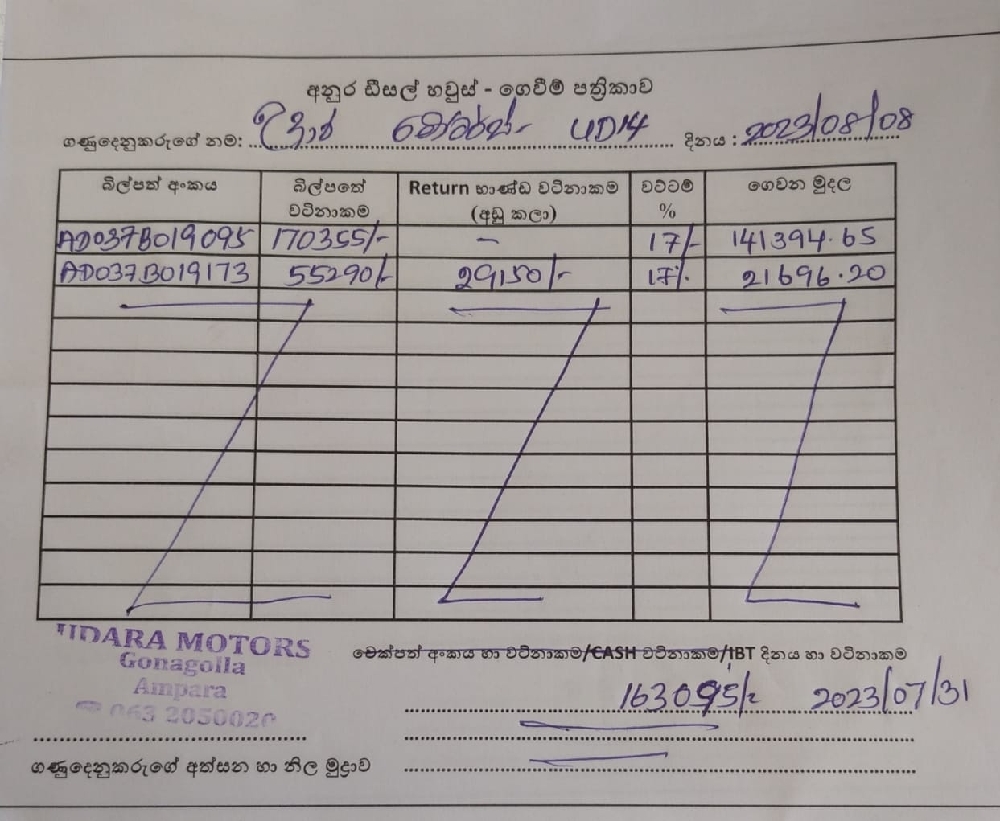 අනුර ඩීසල් හවුස් - ගෙවීම් පත්‍රිකාව
ගණුදෙනුකරුගේ නම: උදාර මෝටර්ස් - UD14 දිනය : 2023/08/08
බිල්පත් අංකය බිල්පතේ වටිනාකම Return භාණ්ඩ වටිනාකම (අඩු කලා) වට්ටම් % ගෙවන මුදල
AD037B019095 170355/- - 17/- 141394.65
AD037B019173 55290/- 29150/- 17%. 21696.20
UDARA MOTORS
Gonagolla
Ampara
063 2050020
චෙක්පත් අංකය හා වටිනාකම/CASH වටිනාකම/IBT දිනය හා වටිනාකම
163095/= 2023/07/31
ගණුදෙනුකරුගේ අත්සන හා නිල මුද්‍රාව